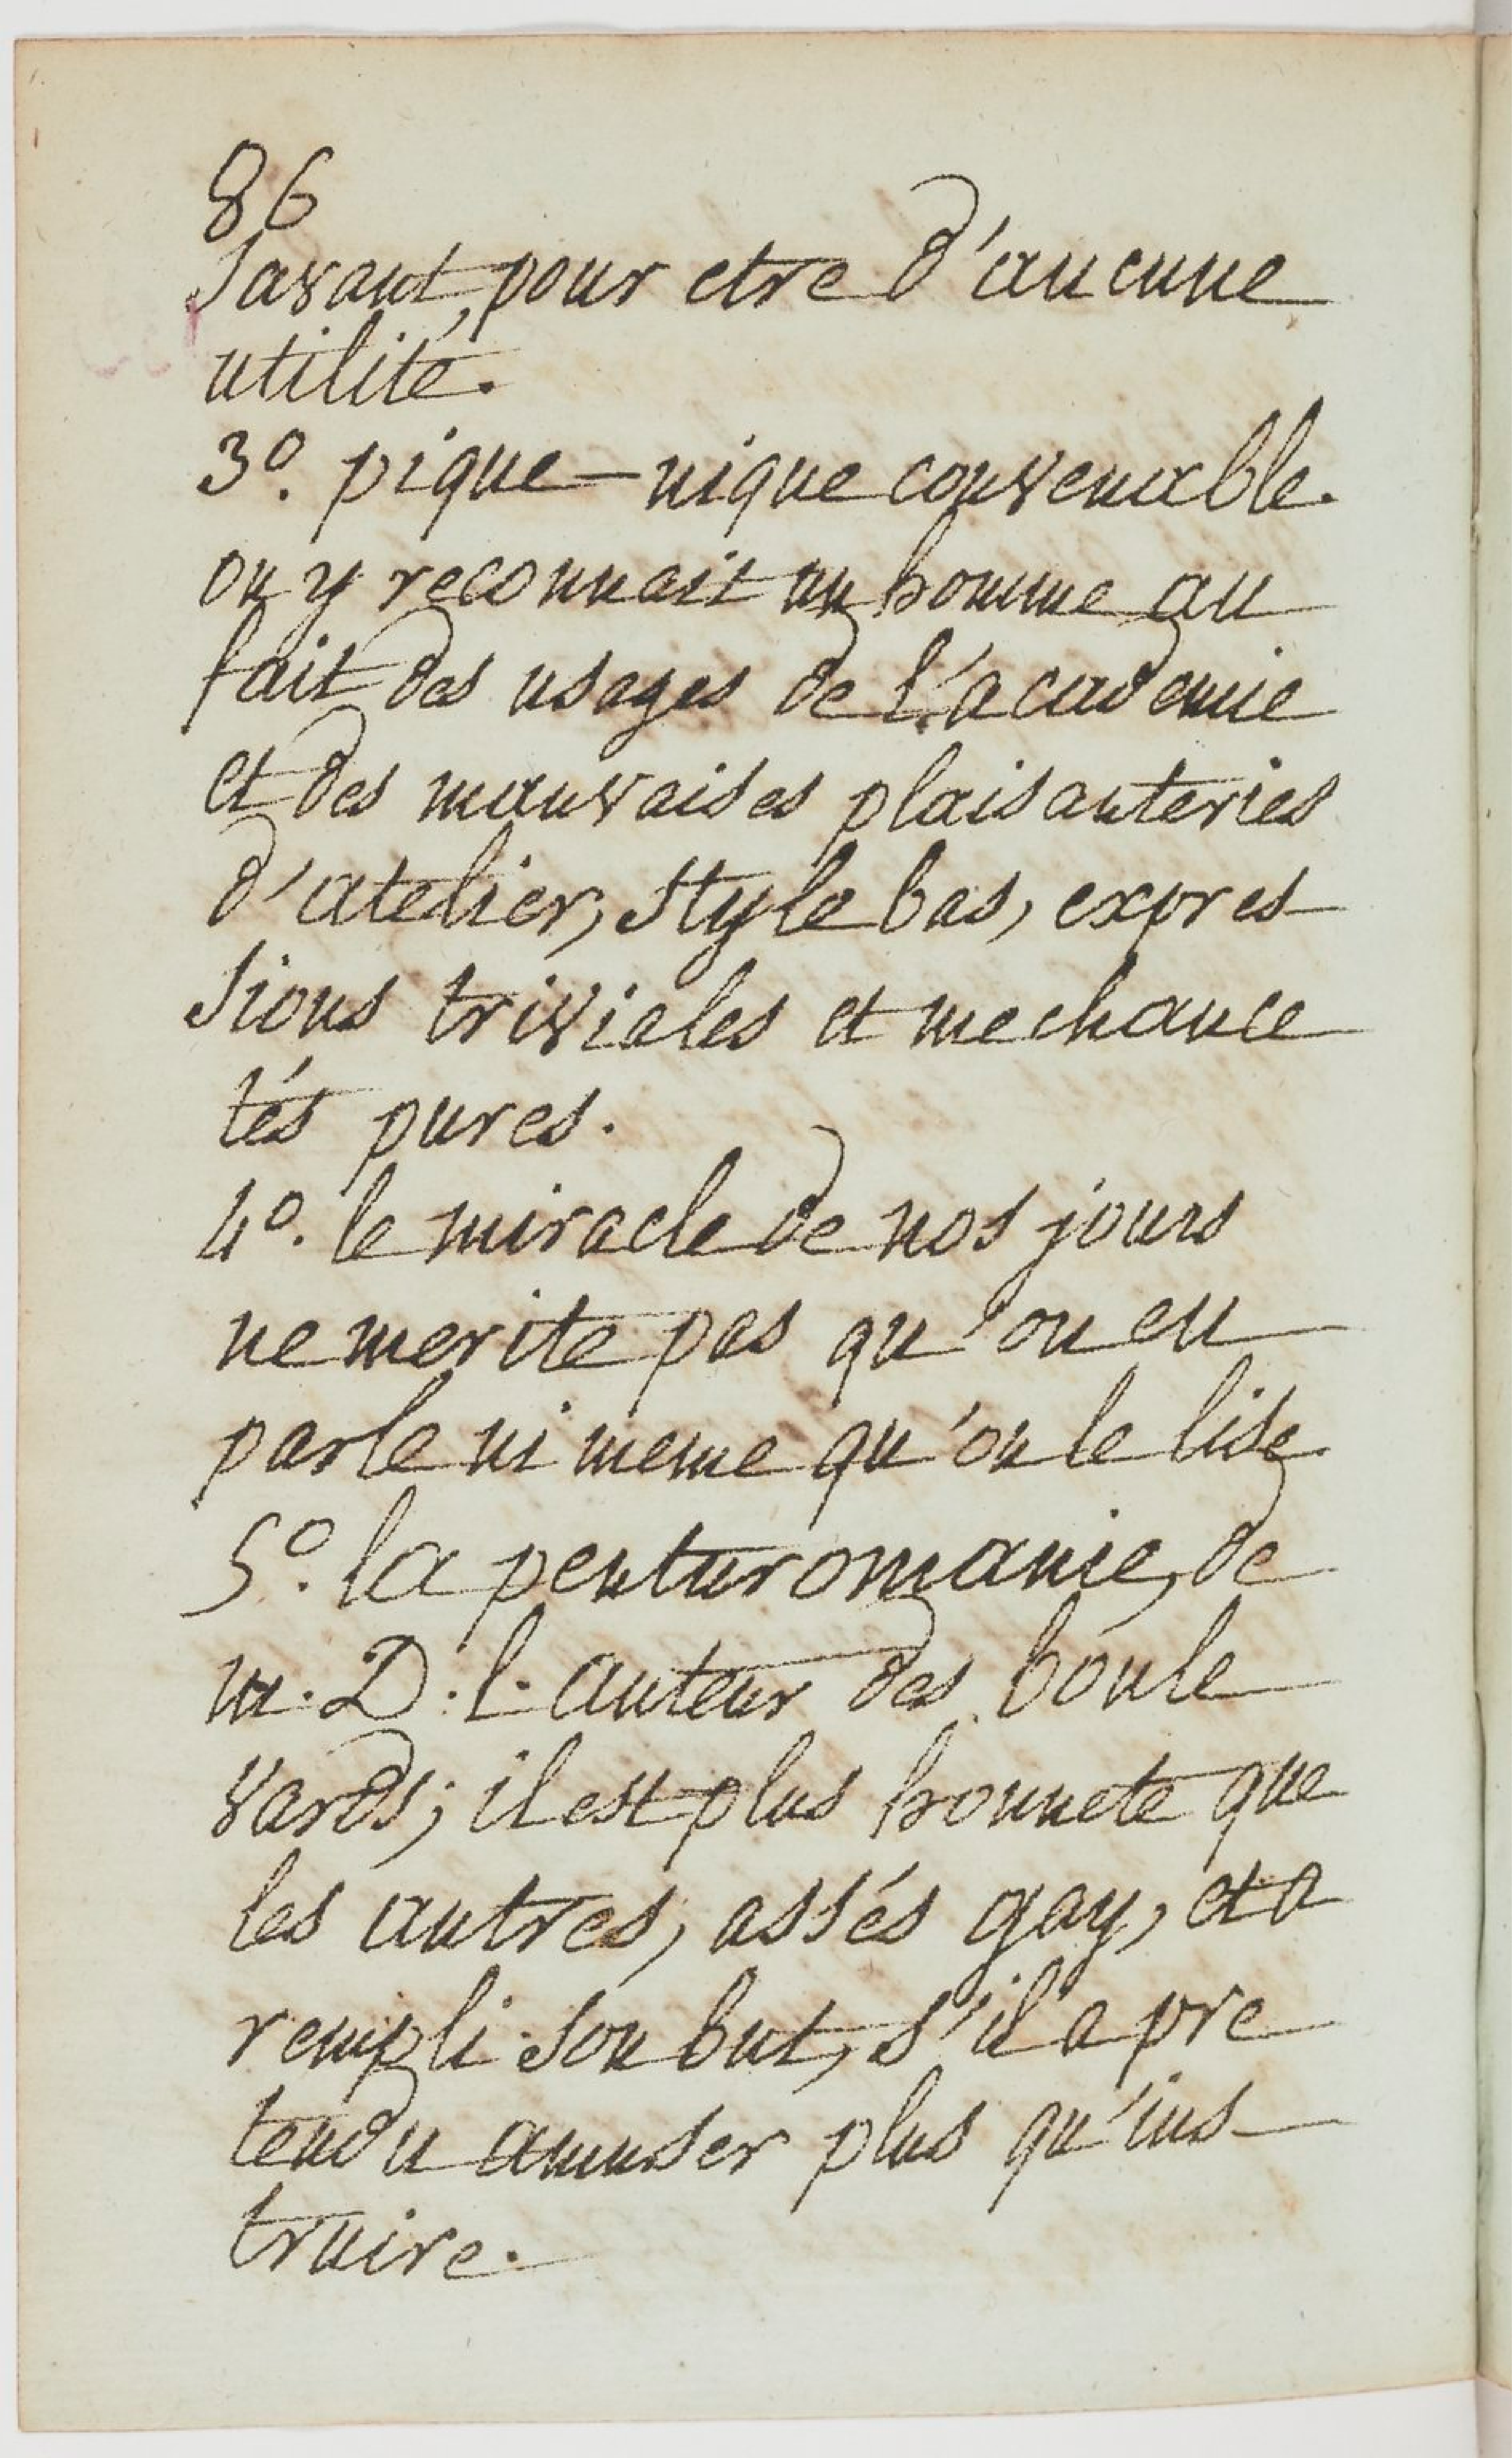 86
savant, pour etre d'aucune
utilité.
3º. pique-nique convenable.
on y reconnait un homme au
fait des usages de l'academie
et des mauvaises plaisanteries
d'atelier, style bas, expres
sions triviales et mechance
tés pures.
4º. le miracle de nos jours
ne merite pas qu'on en
parle ni meme qu'on le lise.
5º. la penturomanie, de
m. D. l. auteur des boule
vards; il est plus honnete que
les autres, assés gay, et a
rempli son but, s'il a pre
tendu amuser plus qu'ins
truire.